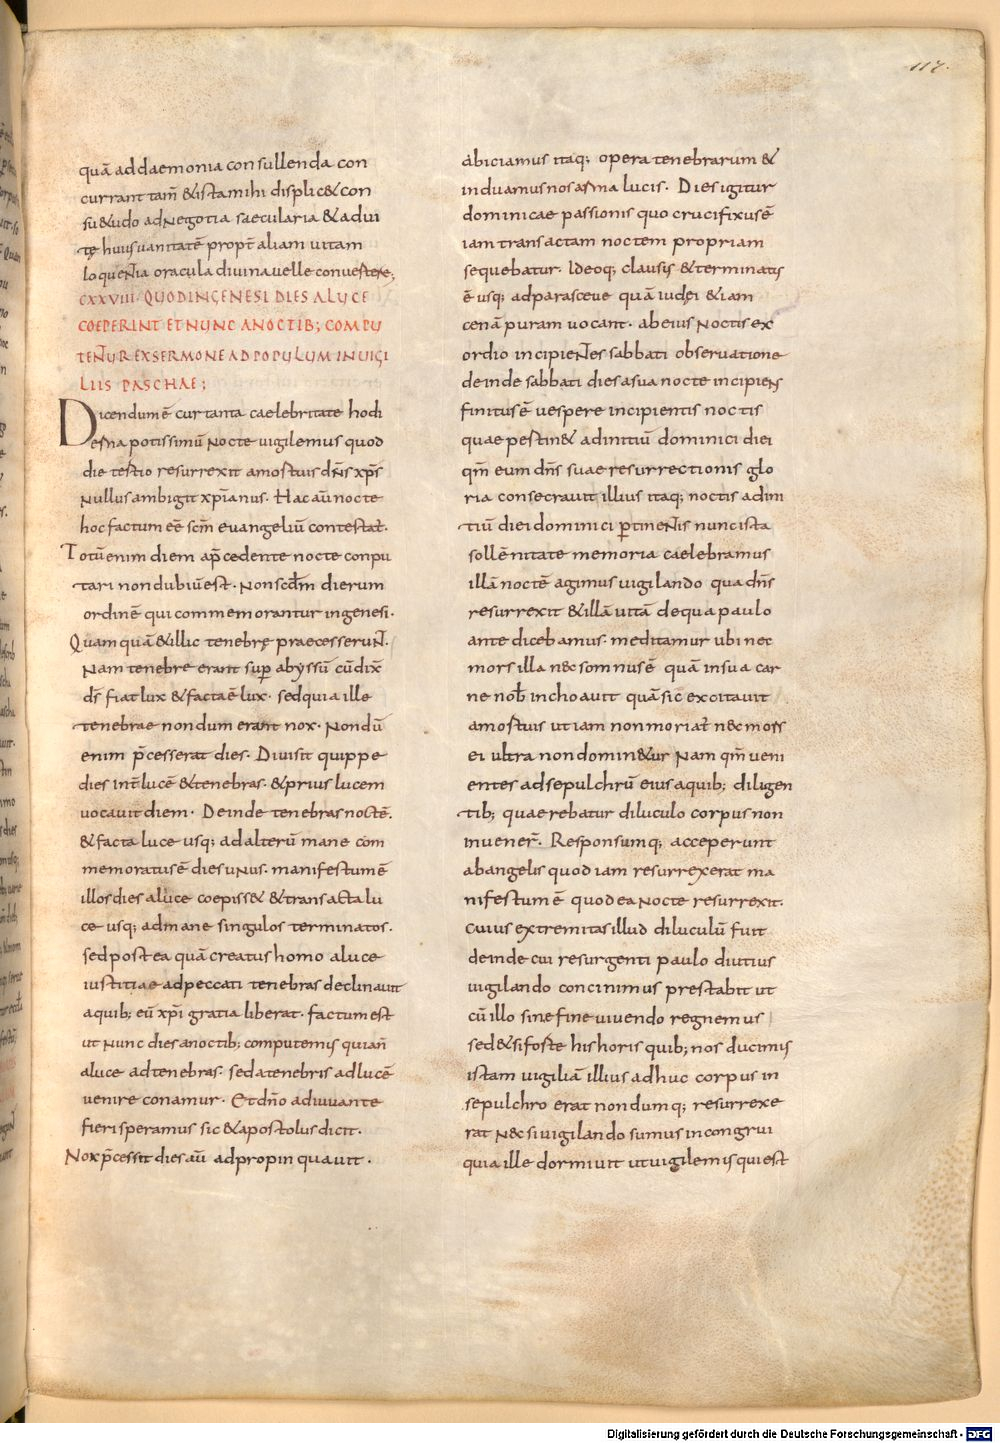 117.
quā ad daemonia consullenda con
currant tam̄ & ista mihi displic& con
su&udo ad negotia saecularia & ad ui
tę huius uanitatē propt̄ aliam uitam
loquentia oracula diuina uelle conuertere;
CXXVIII. QUOD IN GENESI DIES A LUCE
COEPERINT ET NUNC A NOCTIB; COMPU
TENTUR EX SERMONE AD POPULUM IN UIGI
LIIS PASCHAE;
Dicendum ē cur tanta caelebritate hodi
erna potissimū nocte uigilemus quod
die tertio resurrexit a mortuis dn̄s xp̄s
Nullus ambigit xp̄ianus. Hac aū nocte
hoc factum eē scm̄ euangeliū contestat̄.
Totū enim diem a p̄cedente nocte conpu
tari non dubiū est. Non scdm̄ dierum
ordinē qui commemorantur in genesi.
Quamquā & illic tenebrę praecesserunt.
Nam tenebre erant sup̄ abyssū cū dix̄
ds̄ fiat lux & facta ē lux. sed quia ille
tenebrae nondum erant nox. Nondū
enim p̄cesserat dies. Diuisit quippe
dies int̄ lucē & tenebras. & prius lucem
uocauit diem. Deinde tenebras noctē.
& facta luce usq; ad alterū mane com
memoratus ē dies unus. manifestum ē
illos dies a luce coepisse & transacta lu
ce usq; ad mane singulos terminatos.
sed postea quā creatus homo a luce
iustitiae ad peccati tenebras declinauit
a quib; eū xp̄i gratia liberat. factum est
ut nunc dies a noctib; computemus quia n̄
a luce ad tenebras. sed a tenebris ad lucē
uenire conamur. Et dn̄o adiuuante
fieri speramus sic & apostolus dicit.
Nox p̄cessit dies aū adpropinquauit.
abiciamus itaq; opera tenebrarum &
induamus nos arma lucis. Dies igitur
dominicae passionis quo crucifixus ē
iam transactam noctem propriam
sequebatur. Ideoq; clausus & terminatus
ē usq; ad parasceue quā iudęi & iam
cenā puram uocant. ab eius noctis ex
ordio incipientes sabbati obseruatione
deinde sabbati dies a sua nocte incipiens
finitus ē uespere incipientis noctis
quae pertin& ad initiū dominici diei
qm̄ eum dn̄s suae resurrectionis glo
ria consecrauit illius itaq; noctis ad ini
tiū diei dominici p̄tinentis nunc ista
sollēnitate memoria caelebramus
illā noctē agimus uigilando qua dn̄s
resurrexit & illā uitā de qua paulo
ante dicebamus. meditamur ubi nec
mors illa nec somnus ē quā in sua car
ne nob̄ inchoauit quā sic excitauit
a mortuis ut iam non moriat̄ nec mors
ei ultra non domin&ur Nam qm̄ ueni
entes ad sepulchrū eius a quib; diligen
tib; quaerebatur diluculo corpus non
inuener̄. Responsumq; acceperunt
ab angelis quod iam resurrexerat ma
nifestum ē quod ea nocte resurrexit.
cuius extremitas illud diluculū fuit
deinde cui resurgenti paulo diutius
uigilando concinimus prestabit ut
cū illo sine fine uiuendo regnemus
sed & si forte his horis quib; nos ducimus
istam uigiliā illius adhuc corpus in
sepulchro erat nondumq; resurrexe
rat nec si uigilando sumus incongrui
quia ille dormiuit ut uigilemus qui est
Digitalisierung gefördert durch die Deutsche Forschungsgemeinschaft - DFG